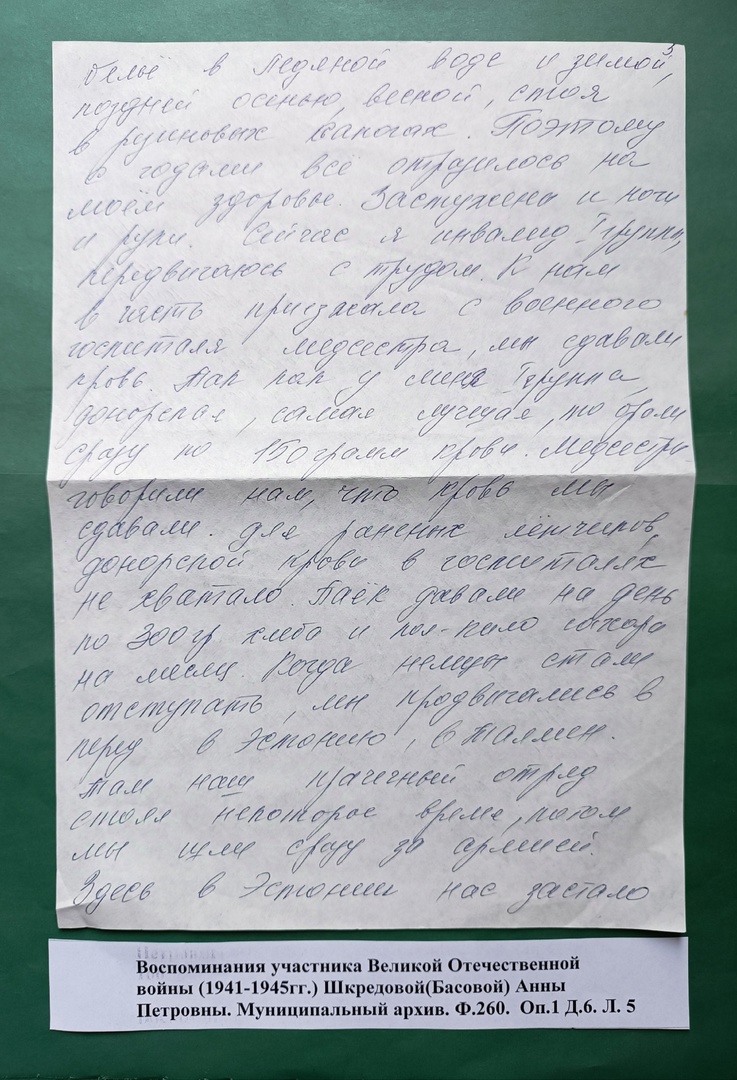 3
бельё в ледяной воде и зимой,
поздней осенью, весной, стоя
в резиновых сапогах. Поэтому
с годами всё отразилось на
моём здоровье. Застужена и ноги
и руки. Сейчас я инвалид I группы,
передвигаюсь с трудом. К нам
в часть приезжала с военного
госпиталя медсестра, мы сдавали
кровь. Так как у меня I группа
донорская, самая лучшая, то брали
сразу по 150 грамм крови. Медсестры
говорили нам, что кровь мы
сдавали для раненых лётчиков,
донорской крови в госпиталях
не хватало. Паёк давали на день
по 300 гр хлеба и пол-кило сахара
на месяц. Когда немцы стали
отступать, мы продвигались в
перед в Эстонию, в Таллин.
Там наш прачечный отряд
стоял некоторое время, потом
мы шли сразу за армией.
Здесь в Эстонии нас застало
Воспоминания участника Великой Отечественной
войны (1941-1945гг.) Шкредовой(Басовой) Анны
Петровны. Муниципальный архив. Ф.260. Оп.1 Д.6. Л. 5